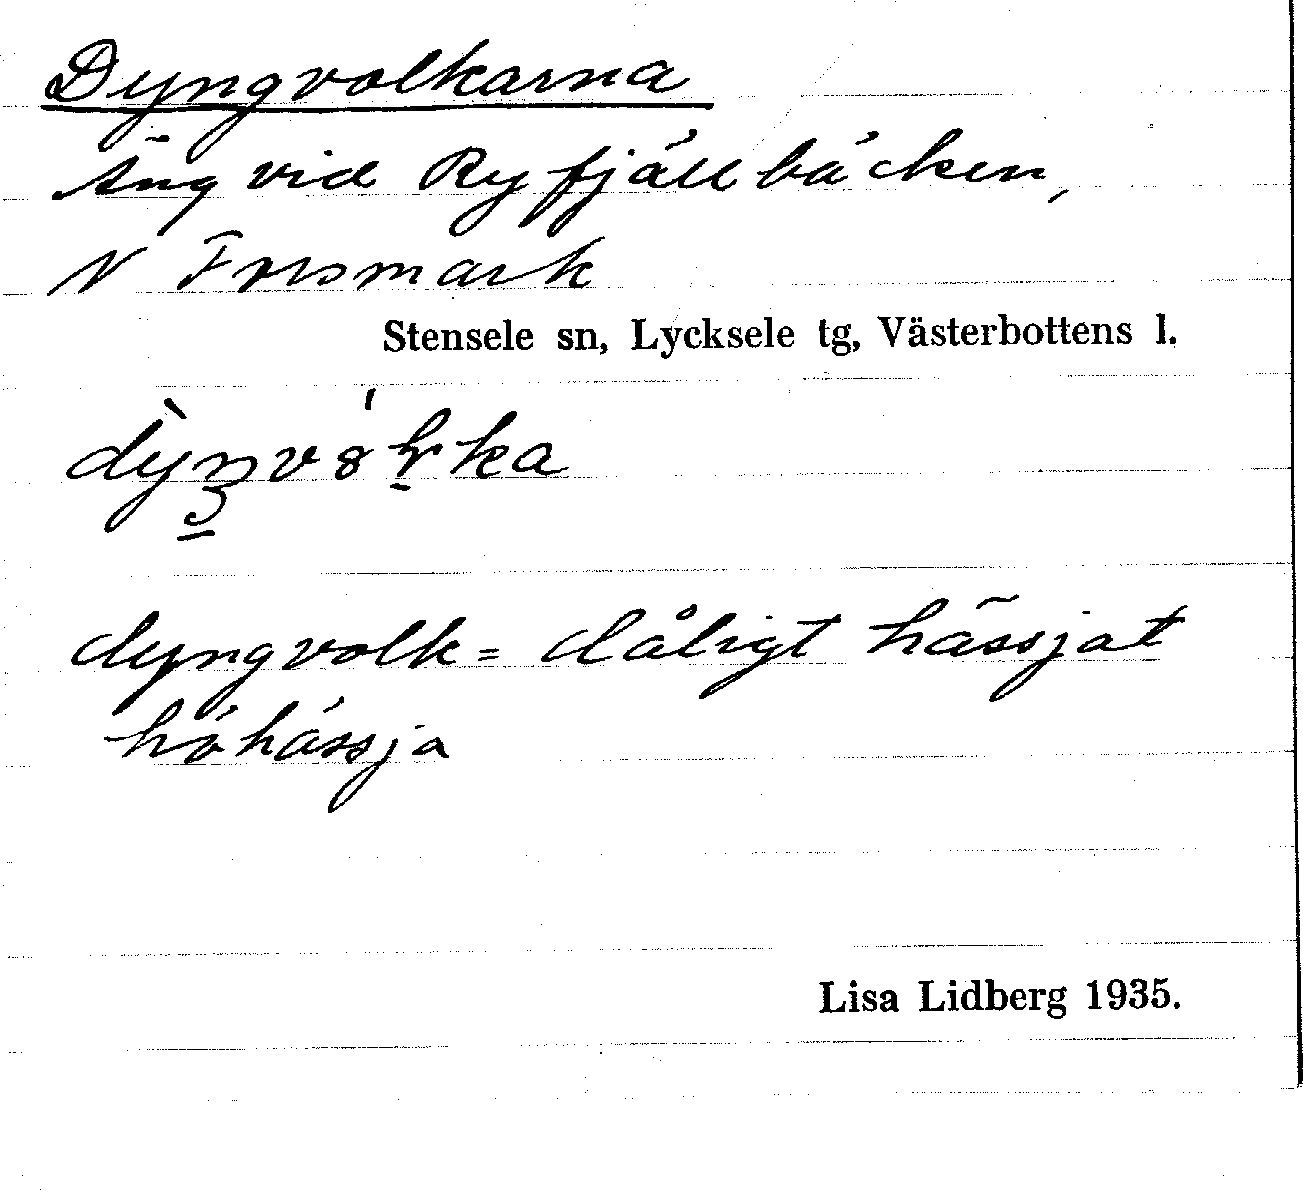 Dyngvolkarna
Äng vid Ryfjällbäcken,
N Frismark
Stensele sn, Lycksele tg, Västerbottens l.
dyngvolk = dåligt hässjat
höhässja
Lisa Lidberg 1935.